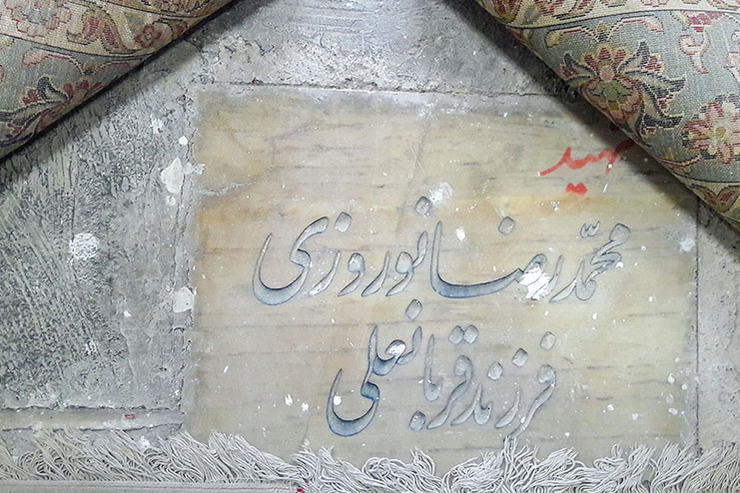 شهید
محمّدرضا نوروزی
فرزند قربانعلی